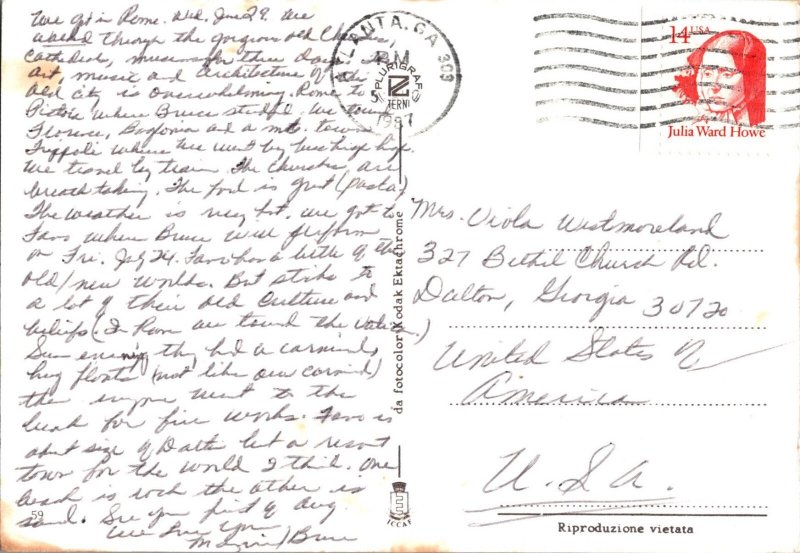 We got in Rome. Wed. June 29. We
walked through the gorgeous old Churches,
Cathedrals, museums for three days. The
art, music and architecture of the
old city is overwhelming. Rome to
Pistoia where Bruce studied. We toured
Florence, and a mt. town
where we went by bus
We travel by train. The Churches are
breath taking. The food is great (pasta)
The weather is very hot. We got to
Fano where Bruce will perform
on Fri. July 24. Fano has a little of the
old/new worlds. But sticks to
a lot of their old culture and
beliefs. (In Rome we toured the Vatican)
Sun evening they had a carnival,
huge floats (not like our carnival)
then everyone went to the
beach for fire works. Fano is
about size of Dalton but a resort
town for the world I think. One
beach is rock the other is
sand. See you first of Aug
We love you
/Bruce
59
ATLANTA, GA 303
PM
1987
PLURIGRAF
TERNI
14 USA
Julia Ward Howe
da fotocolor Kodak Ektachrome
Mrs. Viola Westmoreland
327 Bethel Church Rd.
Dalton, Georgia 30720
United States of
America
U.S.A.
ICCAF
Riproduzione vietata